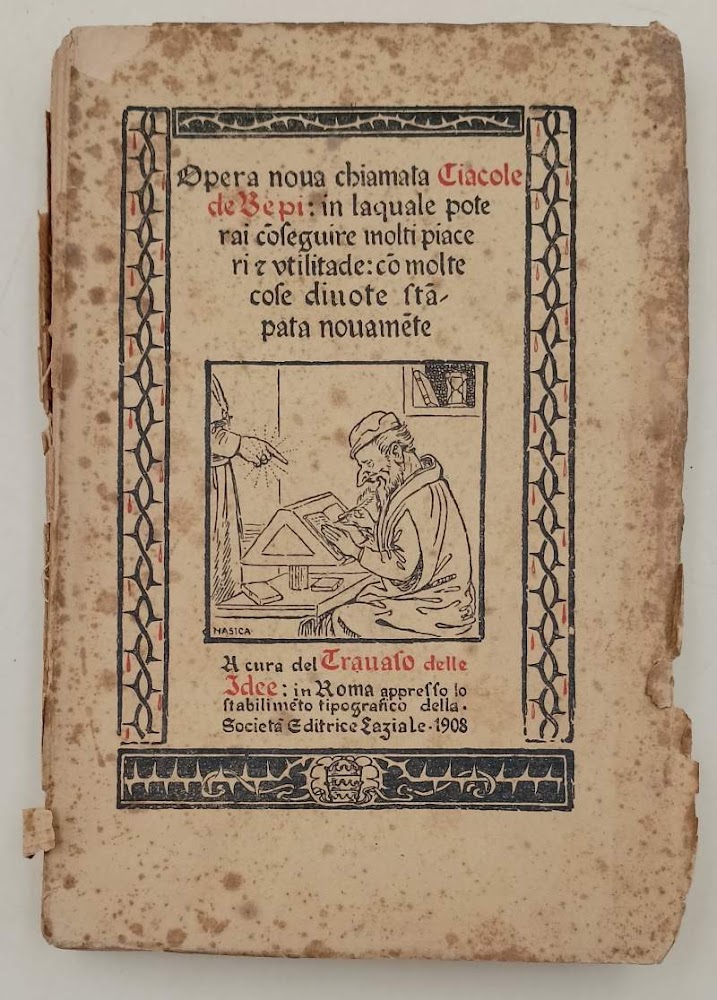 Opera noua chiamata Ciacole
de Bepi: in laquale pote
rai cōseguire molti piace
ri ⁊ vtilitade: cō molte
coſe diuote ſtā-
pata nouamēte
NASICA·
A cura del Trauaſo delle
Idee: in Roma appreſſo lo
ſtabilimēto tipografico della·
Societā Editrice Laziale·1908